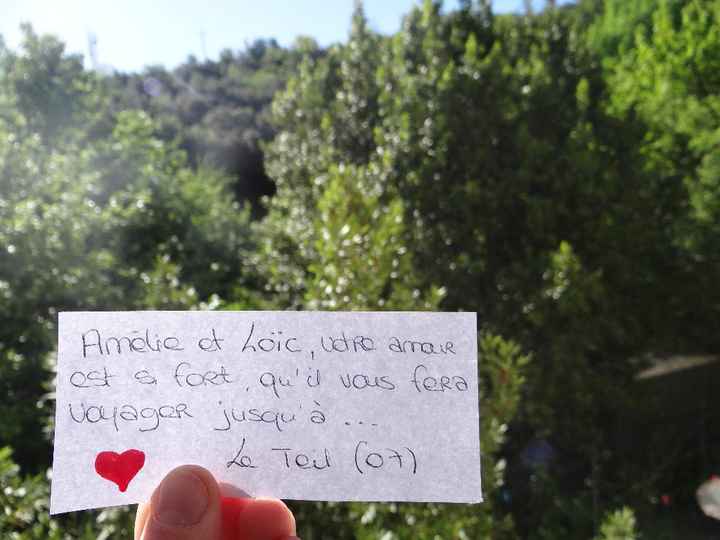 Amélie et Loïc, votre amour
est si fort, qu'il vous fera
voyager jusqu'à ...
Le Teil (07)